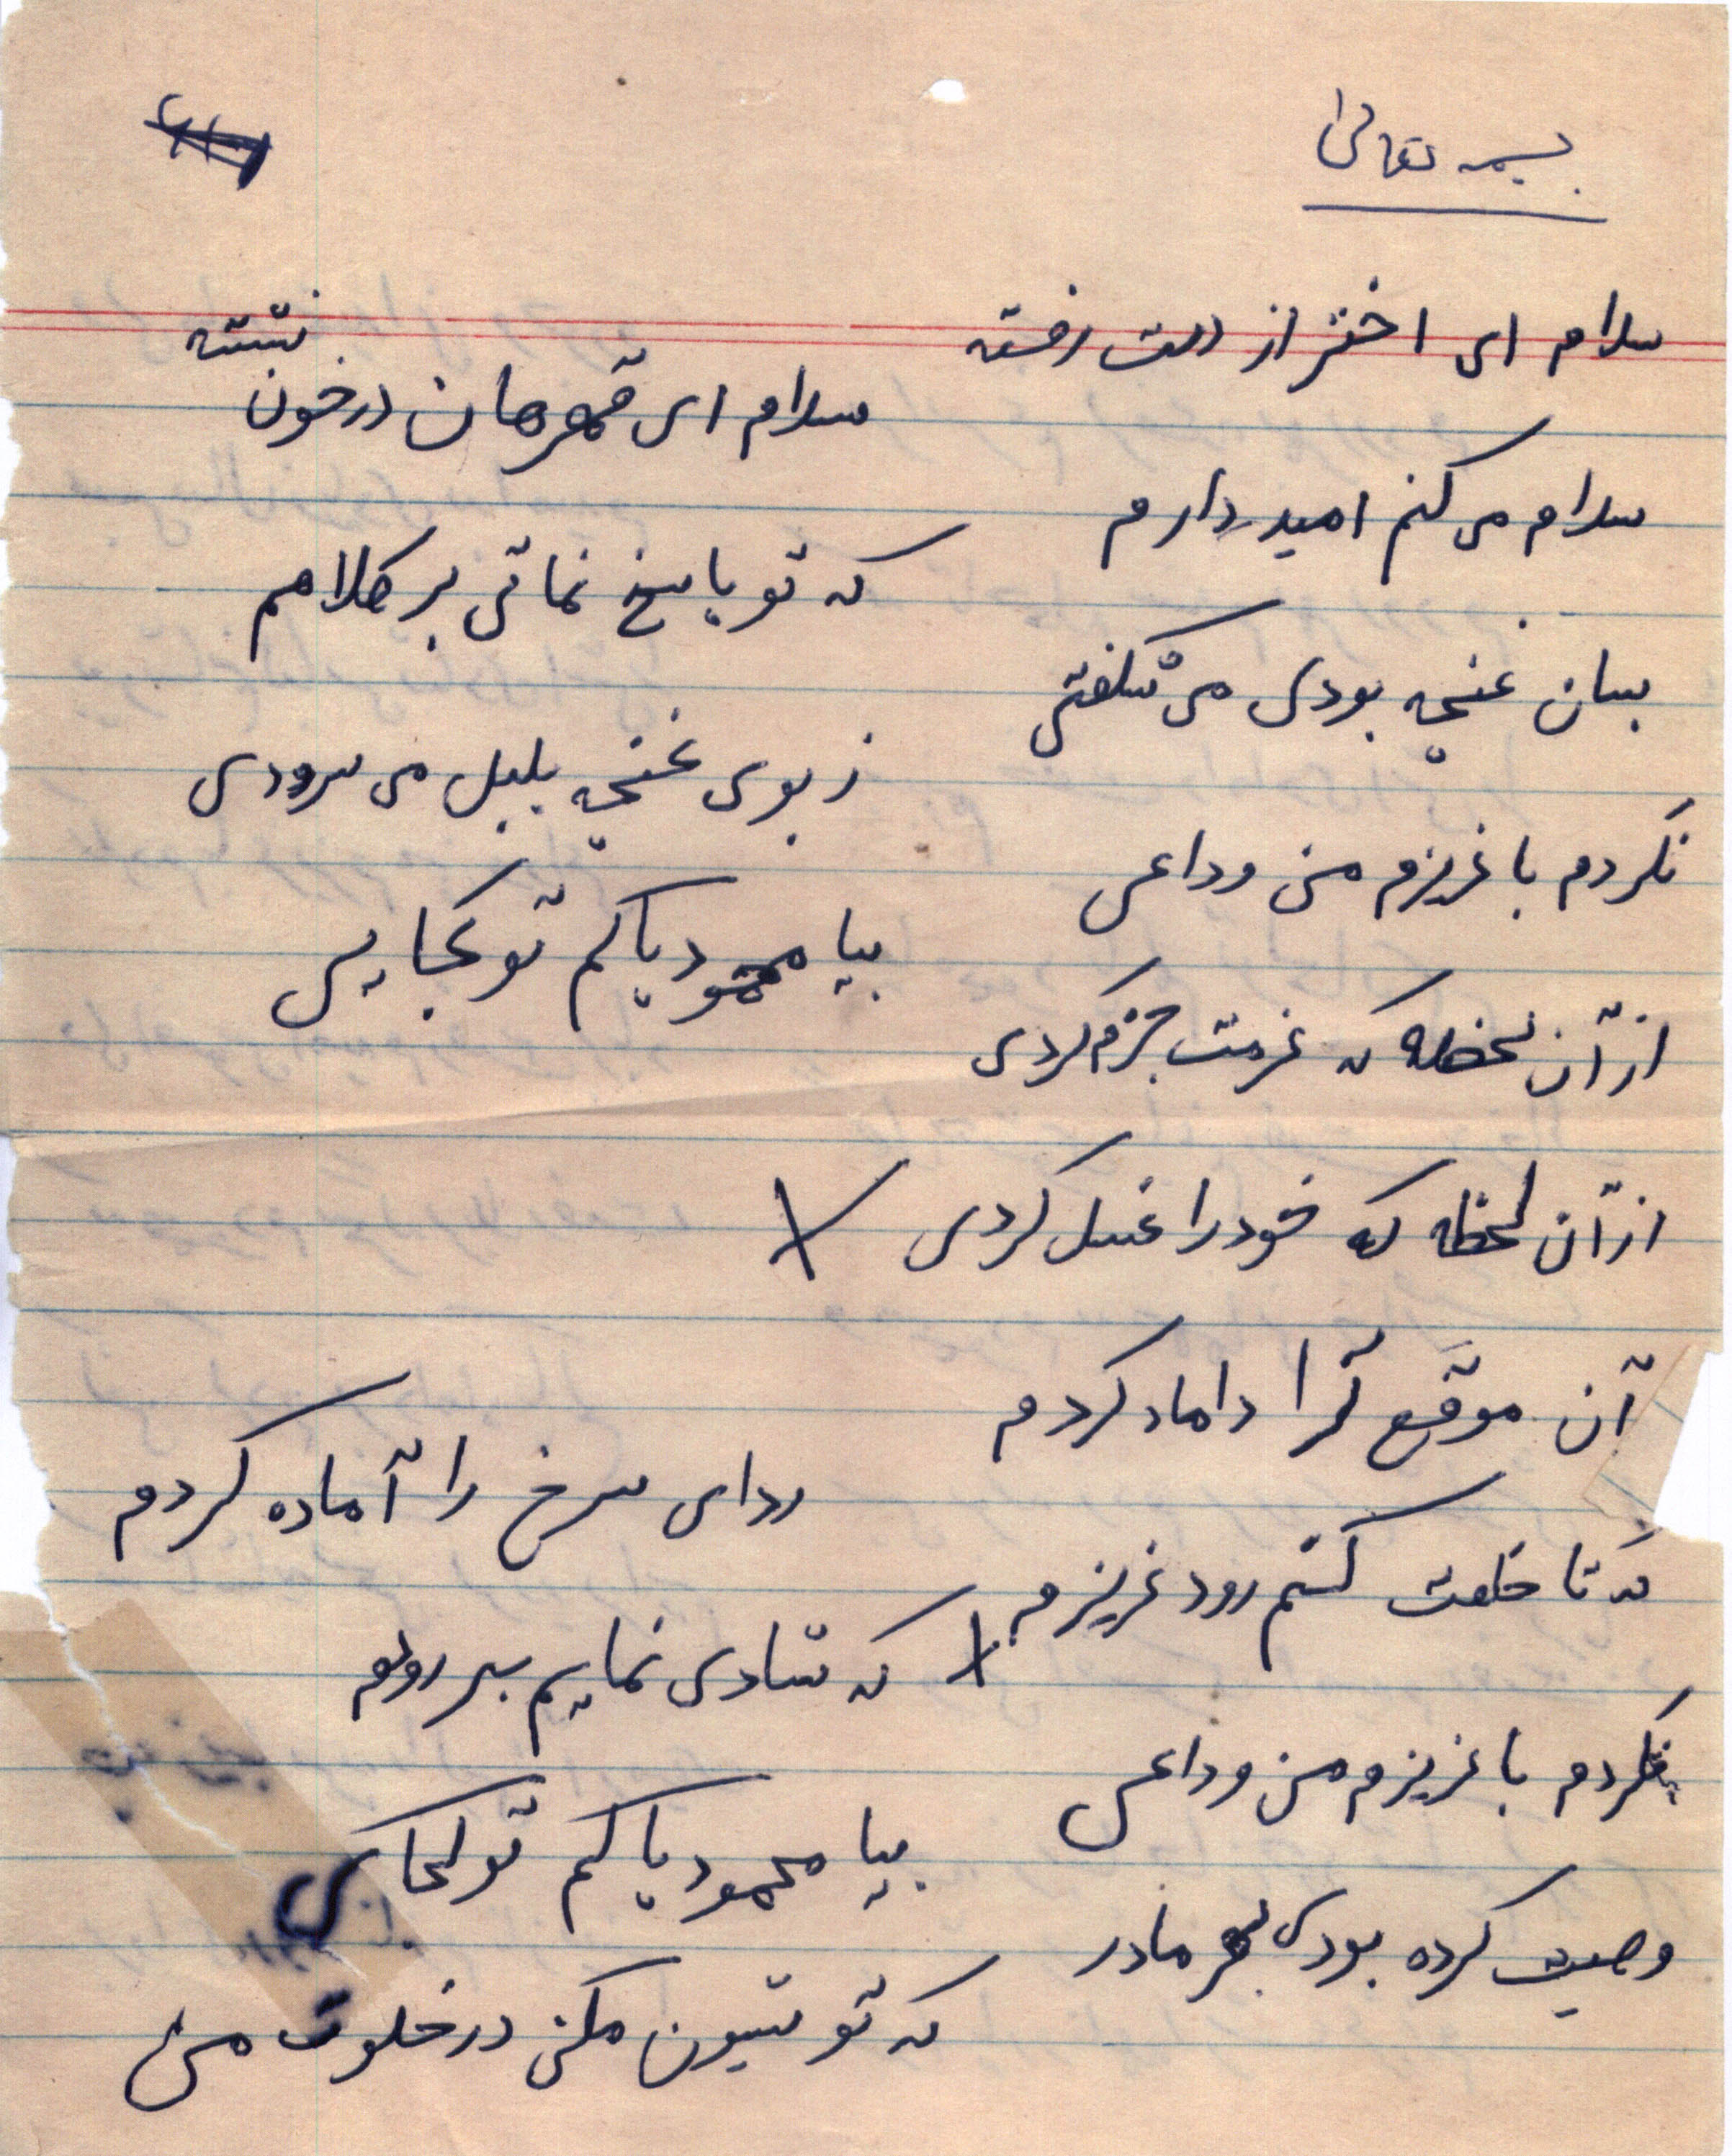 بسمه تعالی
سلام ای اختر از دست رفته
سلام ای قهرمان در خون نشسته
سلام می کنم امید دارم
که تو پاسخ نمائی بر کلامم
بسان غنچه بودی می شکفتی
ز بوی غنچه بلبل می سرودی
نکردم با عزیزم من وداعی
بیا محمود پاکم تو کجایی
از آن لحظه که عزمت جزم کردی
از آن لحظه که خود را غسل کردی
آن موقع ترا داماد کردم
ردای سرخ را آماده کردم
که تا خلعت کنم رود عزیزم
که شادی نمایم بر رودم
نکردم با عزیزم من وداعی
بیا محمود پاکم تو کجای
وصیت کرده بودی بهر مادر
که تو شیون مکن در خلوت من